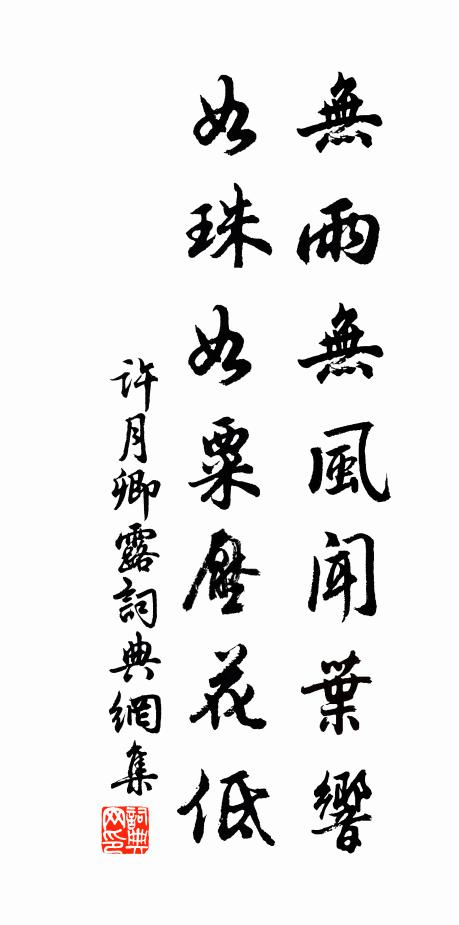 無雨無風聞葉響
如珠如粟壓花低
許月卿露詞典網集
詞典網印